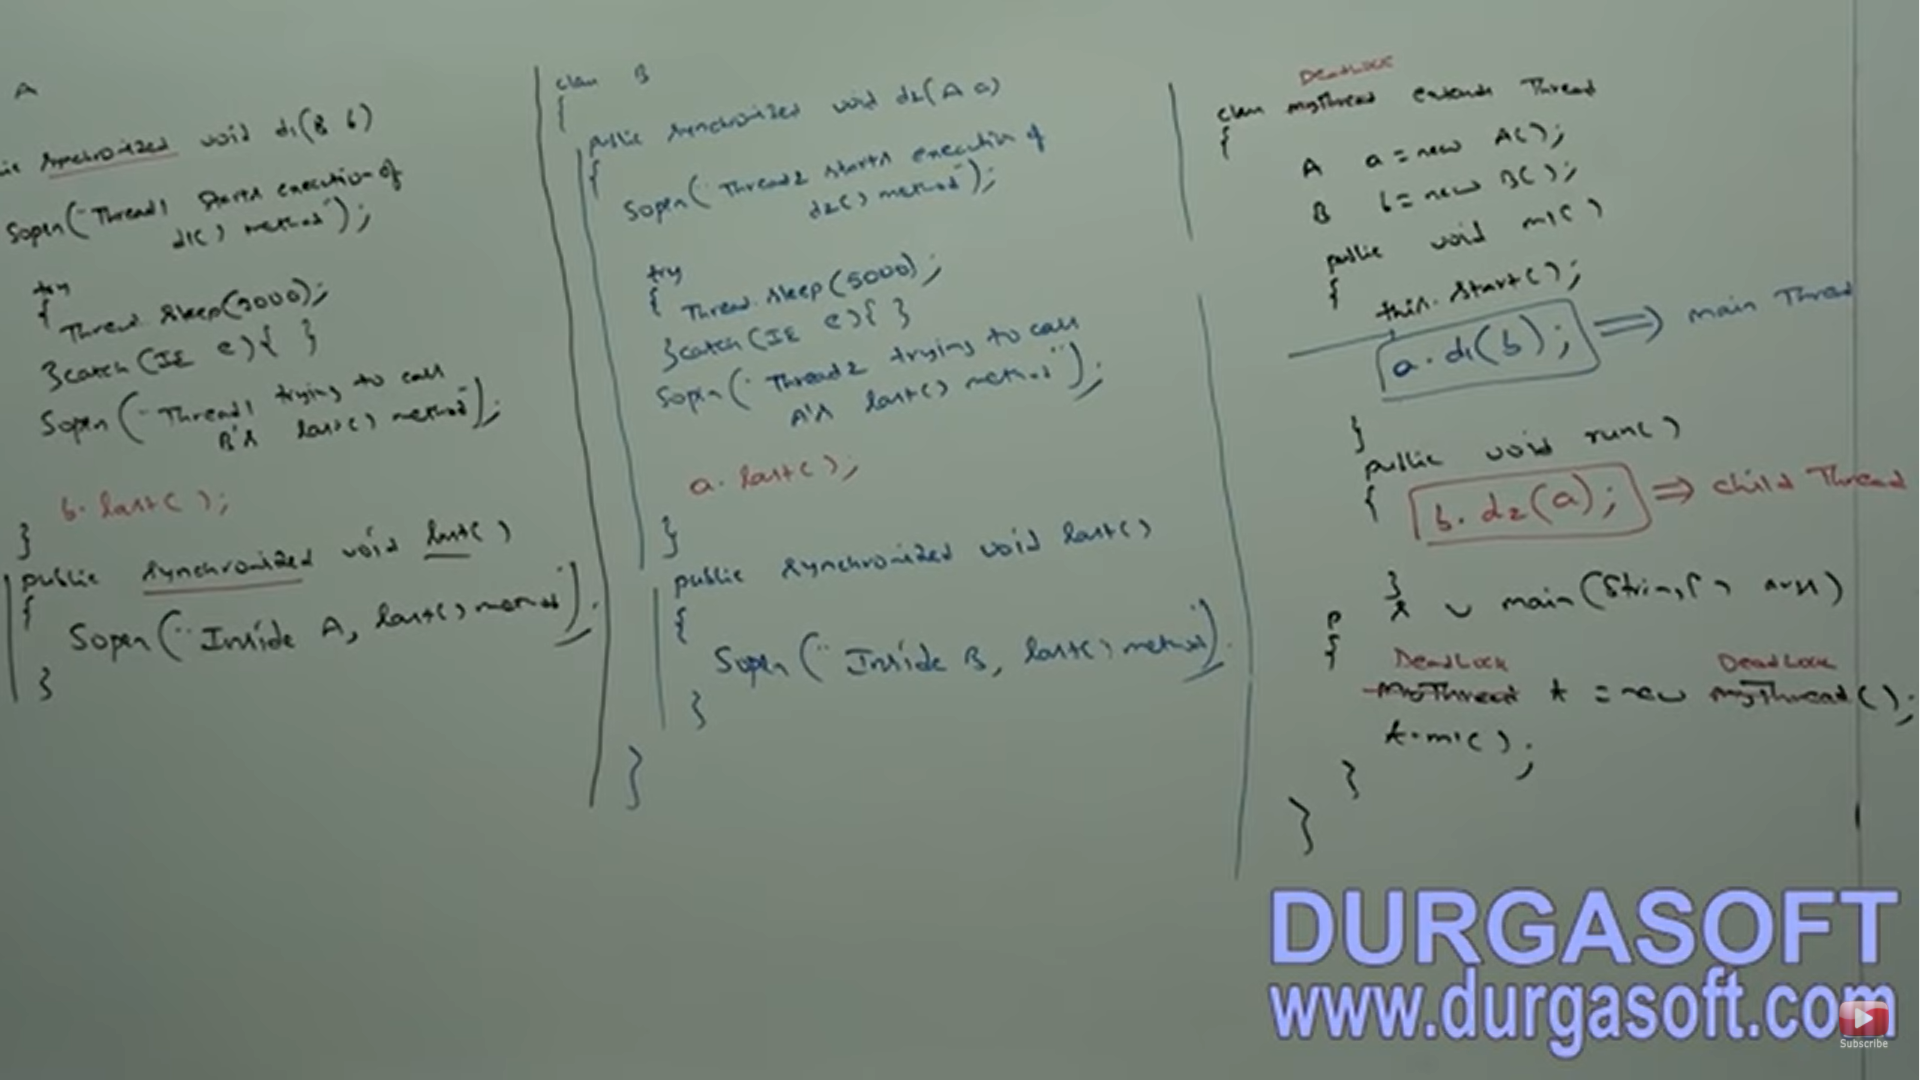 A
synchronized void d1(B b)
Sopln("Thread1 starts execution of
d1() method");
try
{
Thread.sleep(5000);
}catch(IE e){ }
Sopln("Thread1 trying to call
B's last() method");
b.last();
}
public synchronized void last()
{
Sopln("Inside A, last() method");
}
class B
{
public synchronized void d2(A a)
{
Sopln("Thread2 starts execution of
d2() method");
try
{ Thread.sleep(5000);
}catch(IE e){ }
Sopln("Thread2 trying to call
A's last() method");
a.last();
}
public synchronized void last()
{
Sopln("Inside B, last() method");
}
}
DeadLock
class MyThread extends Thread
{
A a = new A();
B b = new B();
public void m1()
{
this.start();
a.d1(b); ⇒ main Thread
}
public void run()
{
b.d2(a); ⇒ child Thread
}
p s v main(String[] args)
{
DeadLock DeadLock
MyThread t = new MyThread();
t.m1();
}
}
DURGASOFT
www.durgasoft.com
Subscribe